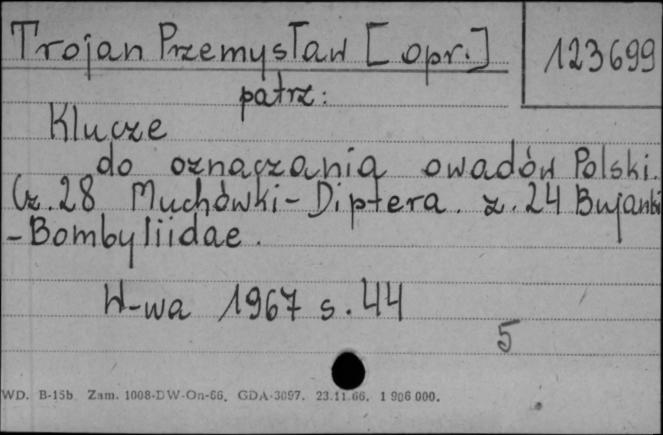 Trojan Przemysław [opr.]
123699
patrz:
Klucze
do oznaczania owadów Polski.
Cz. 28 Muchówki - Diptera. z. 24 Bujanki
- Bombyliidae.
W-wa 1967 s. 44
5
WD. B-15b Zam. 1008-DW-On-66. GDA-3097. 23.11.66. 1 906 000.